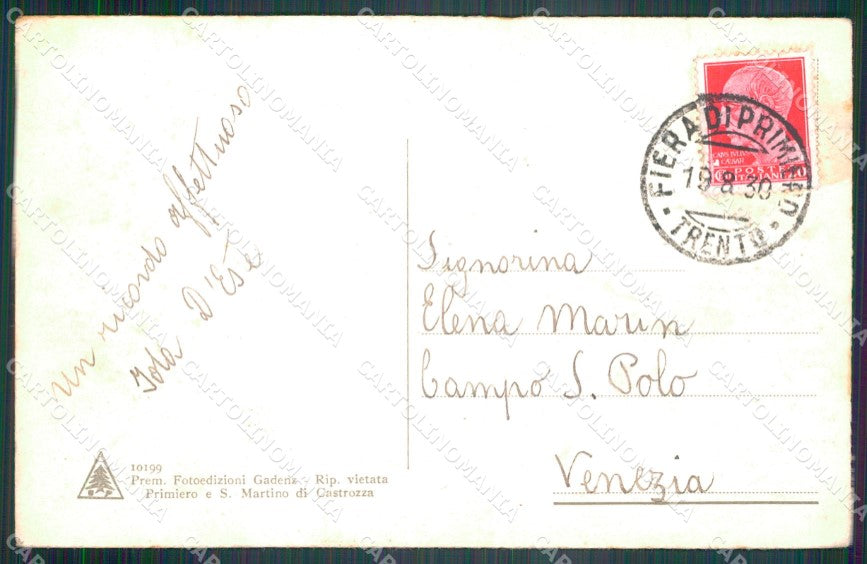 Un ricordo affettuoso
D'Este
FIERA DI PRIMIERO
19.8.30
TRENTO
POSTE ITALIANE
Signorina
Elena Marin
Campo S. Polo
Venezia
10199
Prem. Fotoedizioni Gadenz - Rip. vietata
Primiero e S. Martino di Castrozza
CARTOLINOMANIA